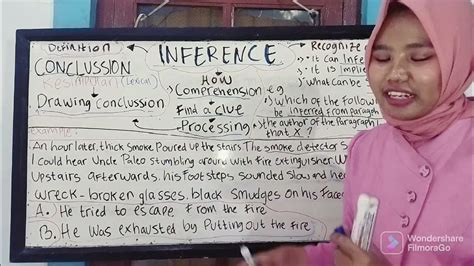 Definition
INFERENCE
Recognize
CONCLUSSION
HOW
It can Infe
(Lexical)
Comprehension
e.g
It is Implie
Drawing Conclussion
Find a Clue
which of the Follow
What can be
be inferred from paragraph
Processing
the author of the Paragraph
that X ?
Example:
An hour later, thick smoke Poured up the stairs. The smoke detector s
I could hear Uncle Paleo stumbling around with Fire extinguisher. W
Upstairs afterwards, his foot steps sounded slow and hea
wreck- broken glasses. black smudges on his Face
A. He tried to escape From the Fire
B. He was exhausted by Putting out the Fire
Wondershare
FilmoraGo